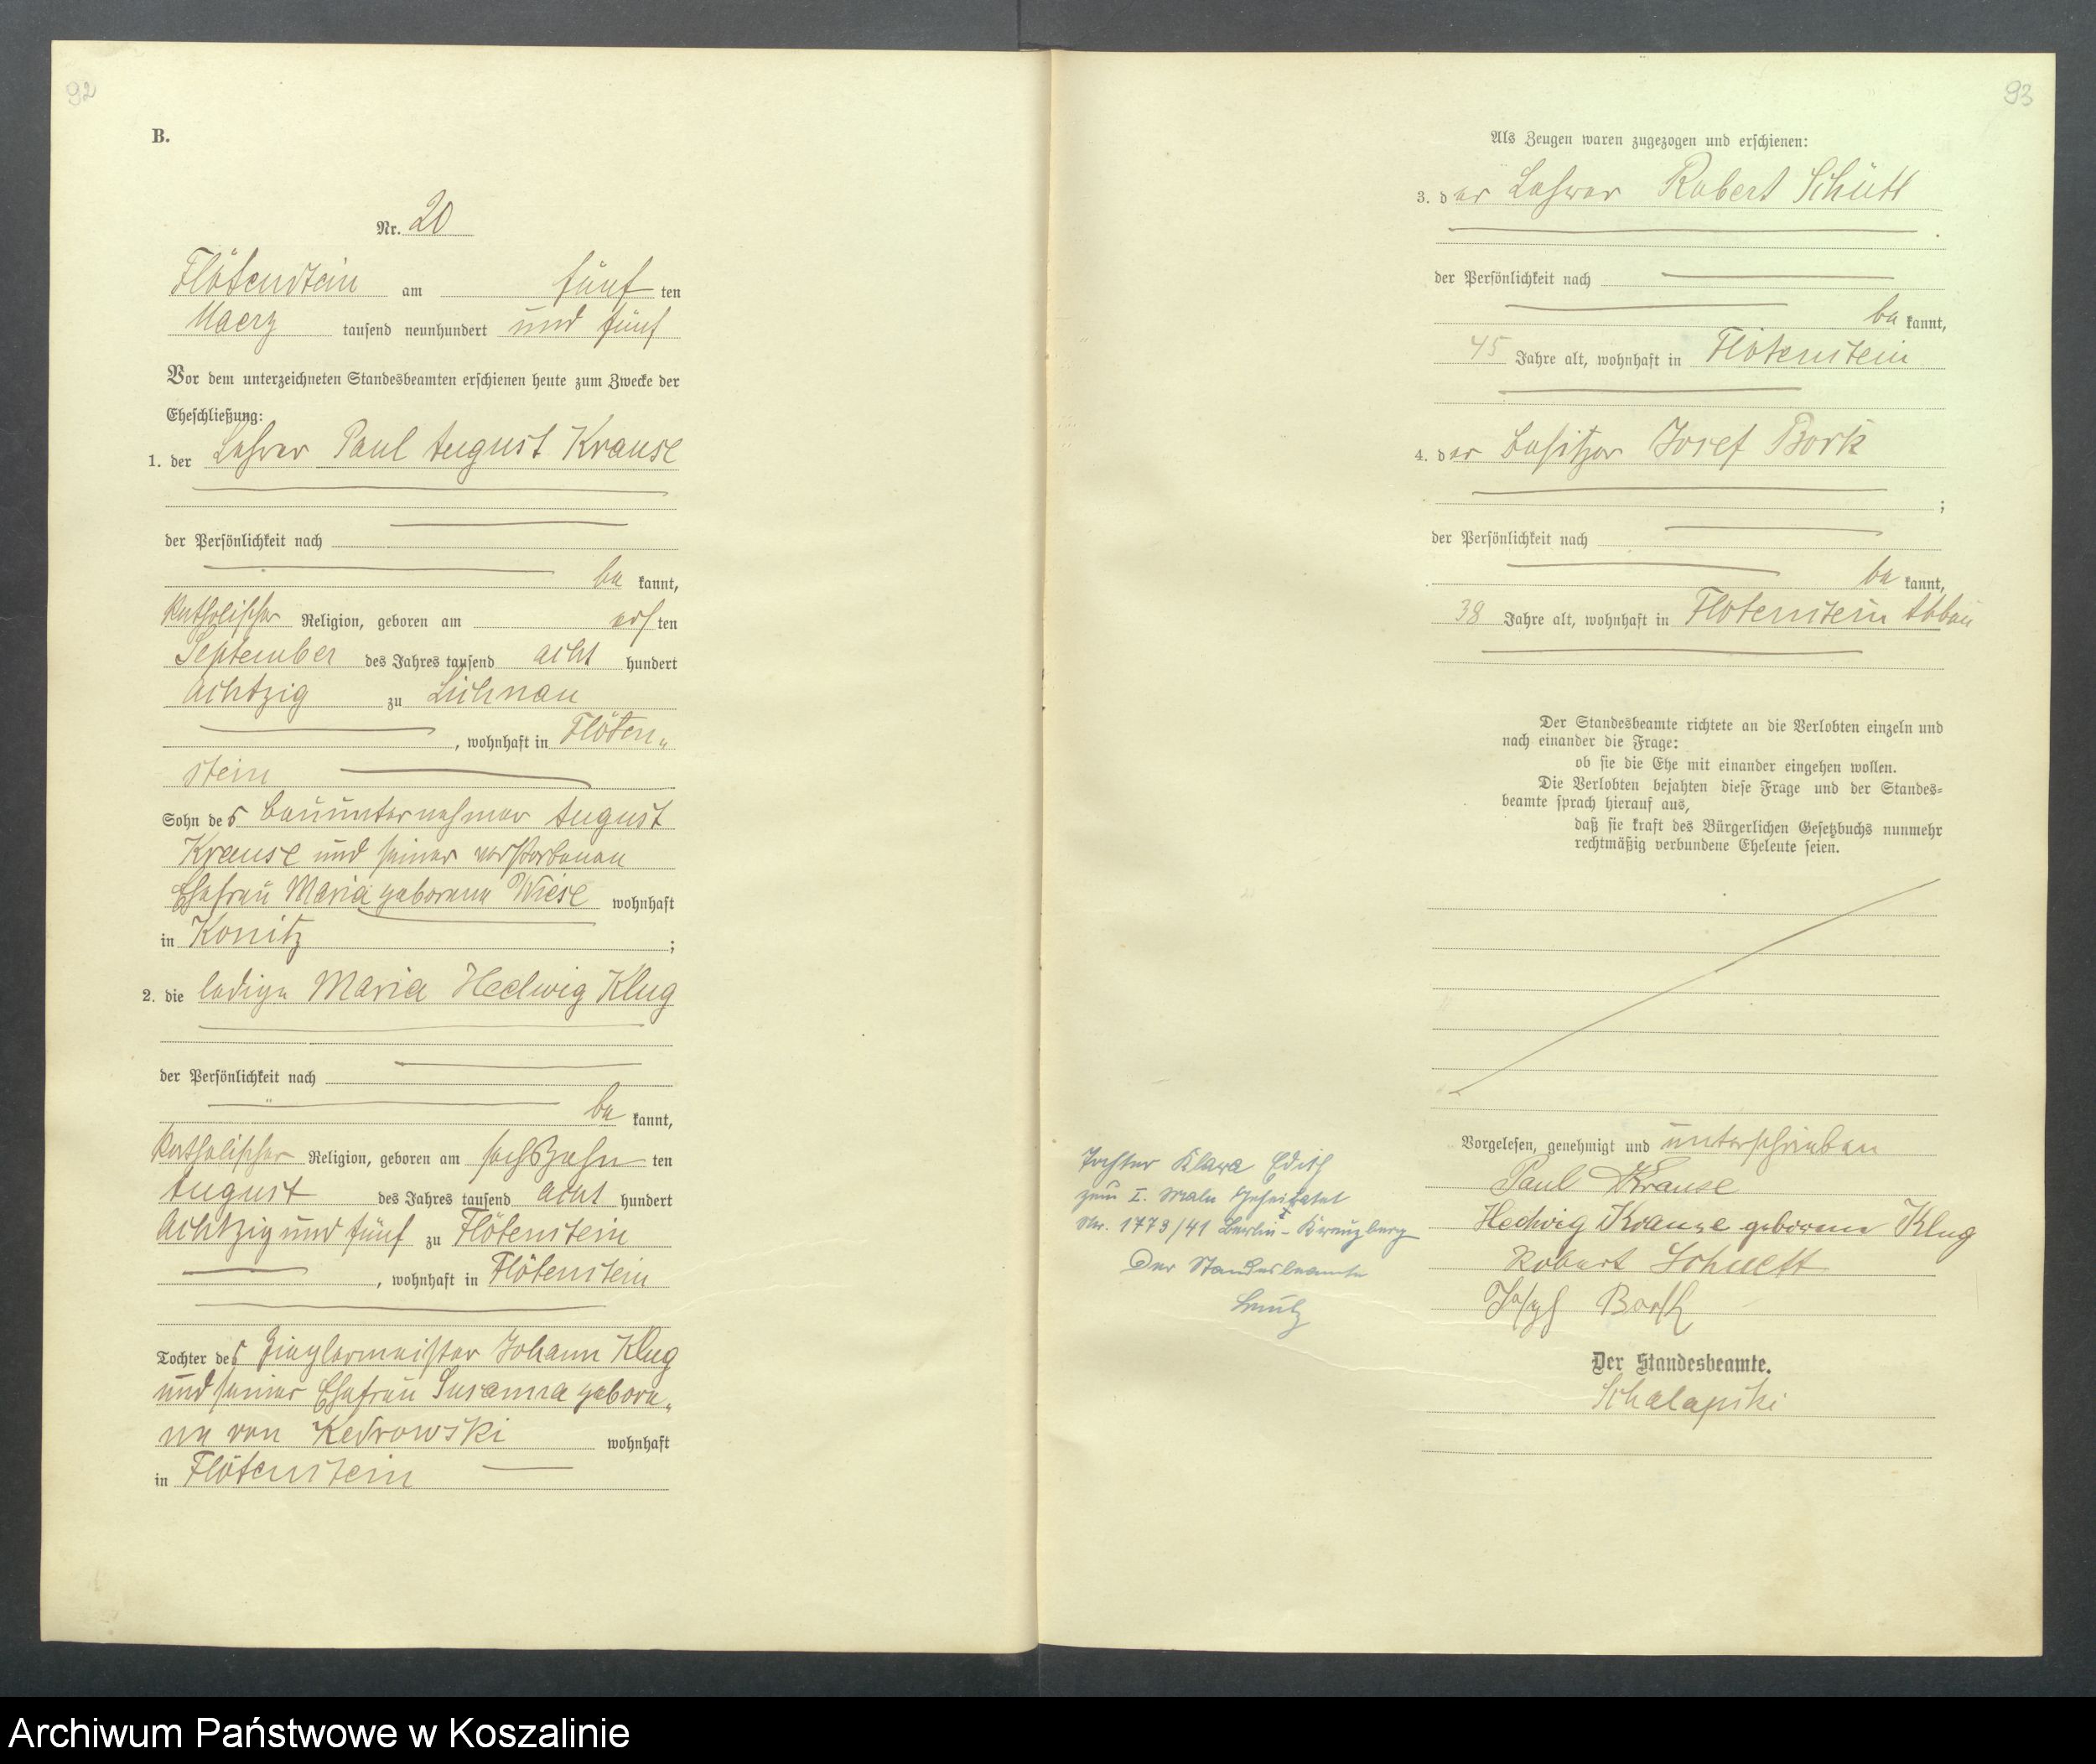 92
B.
Nr. 20
Flötenstein am fünf ten
Maerz tausend neunhundert und fünf
Vor dem unterzeichneten Standesbeamten erschienen heute zum Zwecke der
Eheschließung:
1. der Lehrer Paul August Krause
der Persönlichkeit nach
be kannt,
katholischer Religion, geboren am elf ten
September des Jahres tausend acht hundert
achtzig zu Lichnau
, wohnhaft in Flöten„
stein
Sohn des Bauunternehmer August
Krause und seiner verstorbenen
Ehefrau Maria geborene Wiese wohnhaft
in Konitz ;
2. die ledige Maria Hedwig Klug
der Persönlichkeit nach
be kannt,
katholischer Religion, geboren am sechszehn ten
August des Jahres tausend acht hundert
achtzig und fünf zu Flötenstein
, wohnhaft in Flötenstein
Tochter des Zieglermeister Johann Klug
und seiner Ehefrau Susanna gebore„
ne von Kedrowski wohnhaft
in Flötenstein
93
Als Zeugen waren zugezogen und erschienen:
3. der Lehrer Robert Schütt
der Persönlichkeit nach
be kannt,
45 Jahre alt, wohnhaft in Flötenstein
4. der Besitzer Josef Bork
;
der Persönlichkeit nach
be kannt,
38 Jahre alt, wohnhaft in Flötenstein Abbau
Der Standesbeamte richtete an die Verlobten einzeln und
nach einander die Frage:
ob sie die Ehe mit einander eingehen wollen.
Die Verlobten bejahten diese Frage und der Standes-
beamte sprach hierauf aus,
daß sie kraft des Bürgerlichen Gesetzbuchs nunmehr
rechtmäßig verbundene Eheleute seien.
Vorgelesen, genehmigt und unterschrieben
Paul Krause
Hedwig Krause geborene Klug
Robert Schuett
Joseph Bork
Der Standesbeamte.
Tochter Klara Edith
zum I. Male geheiratet
Nr. 1773/41 Berlin-Kreuzberg
Der Standesbeamte
Archiwum Państwowe w Koszalinie